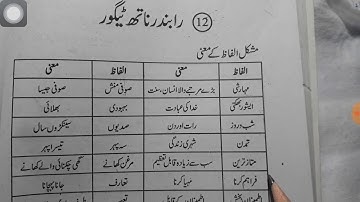 رابندر ناتھ ٹیگور (12)
مشکل الفاظ کے معنی
الفاظ معنی الفاظ معنی
مہارشی بڑے مرتبے والا انسان، سنت صوفی منش صوفی جیسا
ایشور بھگتی خدا کی عبادت بہبودی بھلائی
شب و روز رات اور دن صدیوں سینکڑوں سال
تمدن شہری زندگی سہ پہر تیسرا پہر
ممتاز ترین سب سے زیادہ قابل تعظیم مرغن کھانے گھی چکنائی والے کھانے
فراہم کرنا مہیا کرنا تعارف جانا پہچانا